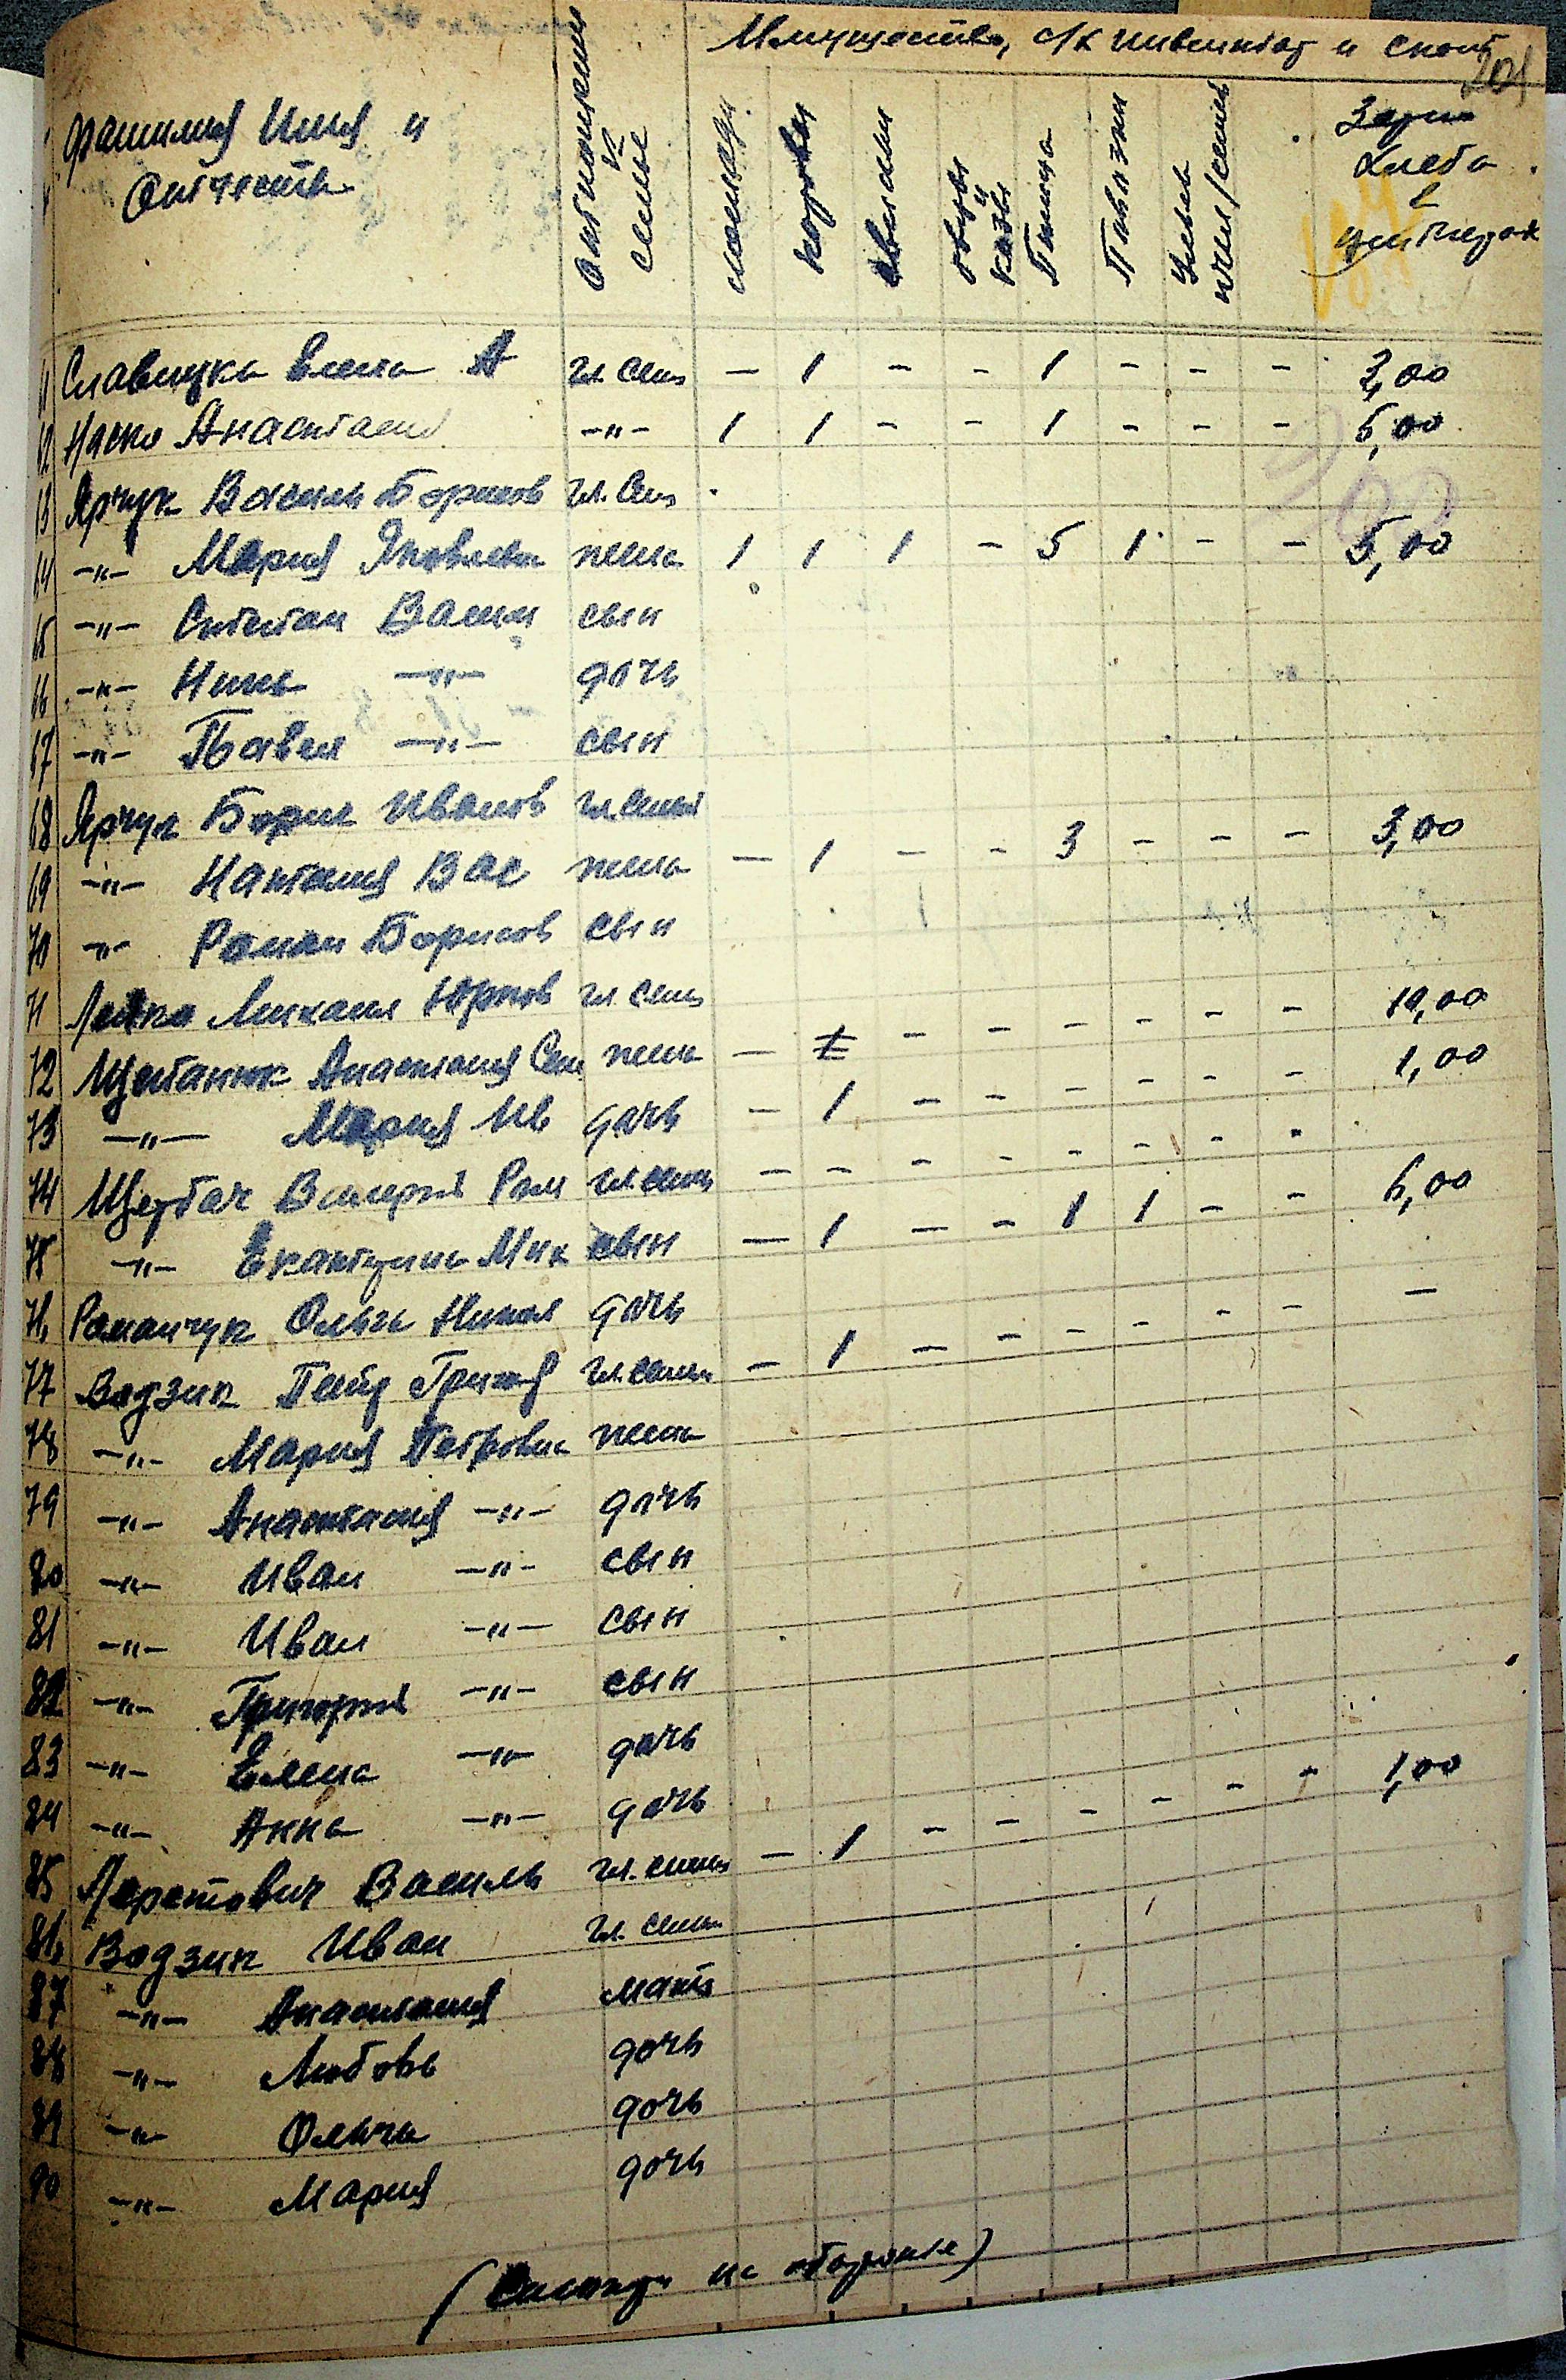 Имущество, с/х инвентар и скот
201
Фамилия Имя и Отчество
Отношение к семье
лошади
коровы
свиньи
овцы и козы
Птица
Повозки
Ульев пчел/семей
Зерно хлеба в центнерах
61 Славицка Елена А гл. семь - 1 - - 1 - - - 3,00
62 Анастасия -"- 1 1 - - 1 - - - 5,00
63 Ярчук Василь Борисов гл. Сем
64 -"- Мария Яковлевн жена 1 1 1 - 5 1 - - 5,00
65 -"- Степан Васил сын
66 -"- Нина -"- дочь
67 -"- Павел -"- сын
68 Ярчук Борис Иванов гл. семьи
69 -"- Наталия Вас жена - 1 - - 3 - - - 3,00
70 -"- Роман Борисов сын
71 Михаил Юрков гл семь - - - - - - - 10,00
72 Щепанюк Анастасия Сем жена - 1 - - - - - - 1,00
73 -"- Мария Ив дочь - - - - - - - -
74 Щербач Валерий Ром гл. семи
- 1 - - 1 1 - - 6,00
75 -"- Екатерина Мих сын
76 Романчук Ольга Никол дочь
- 1 - - - - - - -
77 Водзик Григ гл. семьи
78 -"- Мария Петровна жена
79 -"- Анастасия -"- дочь
80 -"- Иван -"- сын
81 -"- Иван -"- сын
82 -"- Григорий -"- сын
83 -"- Елена -"- дочь
84 -"- Анна -"- дочь
- 1 - - - - - - 1,00
85 Василь гл. семьи
86 Водзик Иван гл. семьи
87 -"- Анастасия мать
88 -"- Любовь дочь
89 -"- Ольга дочь
90 -"- Мария дочь
( на обороте)